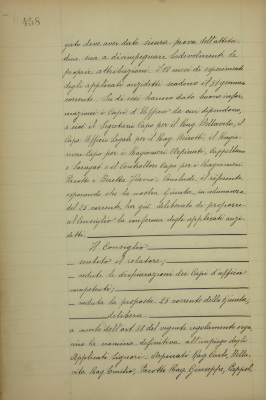 458
gato deve aver dato sicura prova dell'attitu-
dine sua a disimpegnare lodevolmente le
proprie attribuzioni. I 12 mesi di esperimento
degli applicati anzidetti scadono il 31 gennaio
corrente. Su di essi hanno dato buone infor-
mazioni i Capi d'Ufficio da cui dipendono,
e cioè il Segretario Capo per il Rag. Pellavita, il
Capo Ufficio Legale per il Rag. il Ragio-
niere Capo per i Ragionieri Arpinati, Cappellano
e Saragat e il Controllore Capo per i Ragionieri
Pasotto e Conclude il riferente
esponendo che la nostra Giunta, in adunanza
del 25 corrente, ha già deliberato di proporre
al Consiglio la conferma degli applicati anzi-
detti
Il Consiglio
sentito il relatore;
vedute le dichiarazioni dei Capi d'ufficio
rispettivi;
veduta la proposta 25 corrente della Giunta,
delibera
a mente dell'art. del vigente regolamento orga-
nico la nomina definitiva all'impiego degli
Applicati Signori: Arpinati Rag. Carlo, Pella-
vita Rag. Emilio, Pasotto Rag. Giuseppe, Cappel-